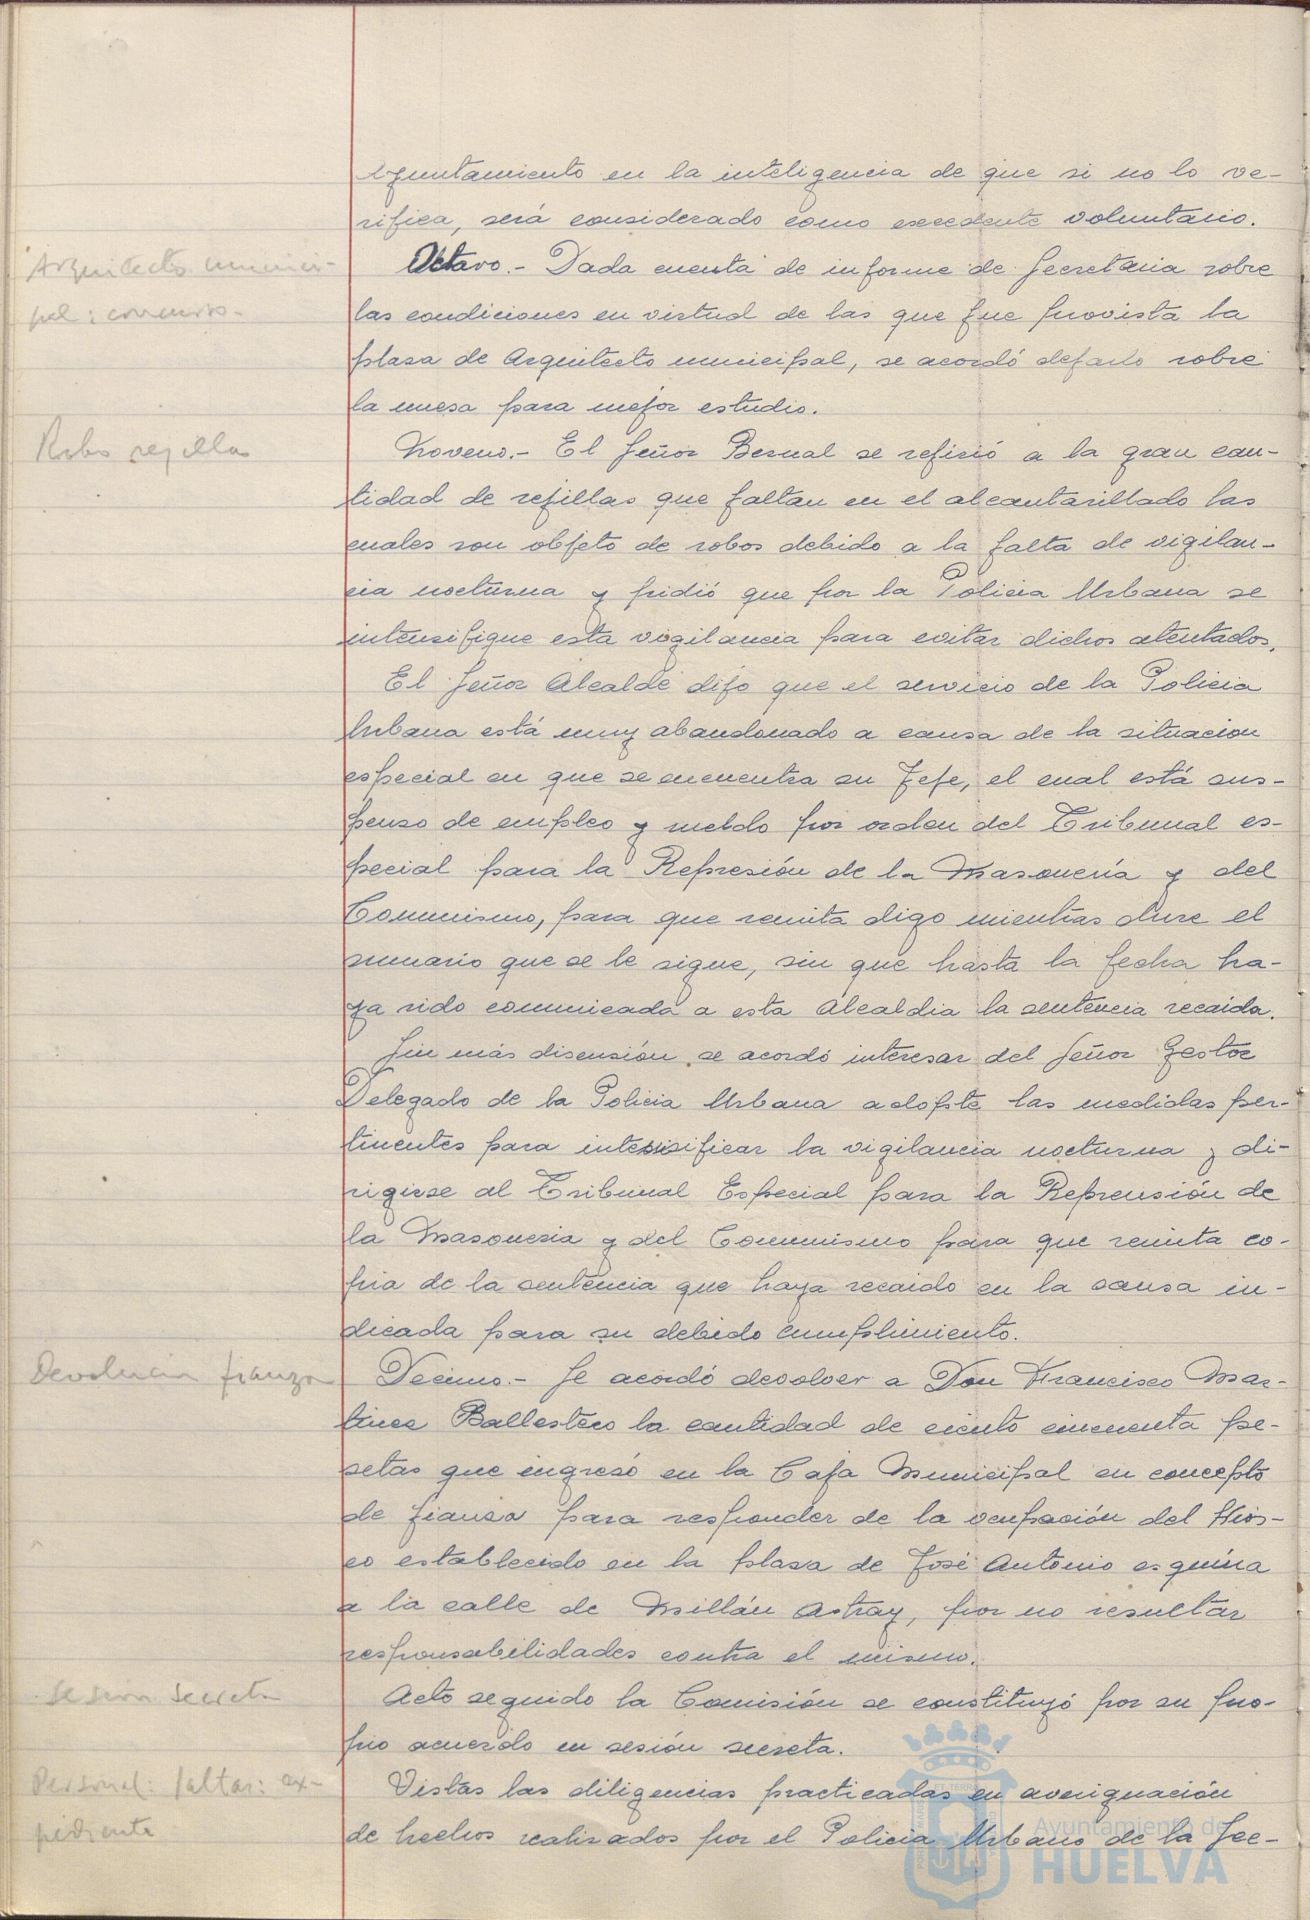 Ayuntamiento en la inteligencia de que si no lo ve-
rifica, será considerado como excedente voluntario.
Arquitecto munici-
pal: concurso.-
Octavo.- Dada cuenta de informe de Secretaria sobre
las condiciones en virtud de las que fue provista la
plasa de Arquitecto municipal, se acordó dejarlo sobre
la mesa para mejor estudio.
Robo rejillas
Noveno.- El Señor Bernal se refirió a la gran can-
tidad de rejillas que faltan en el alcantarillado las
cuales son objeto de robos debido a la falta de vigilan-
cia nocturna y pidió que por la Policia Urbana se
intensifique esta vigilancia para evitar dichos atentados.
El Señor Alcalde dijo que el servicio de la Policia
Urbana está muy abandonado a causa de la situacion
especial en que se encuentra su Jefe, el cual está sus-
penso de empleo y sueldo por orden del Tribunal es-
pecial para la Represión de la Masonería y del
Comunismo, para que remita digo mientras dure el
sumario que se le sigue, sin que hasta la fecha ha-
ya sido comunicada a esta Alcaldia la sentencia recaída.
Sin más discusión se acordó interesar del Señor Gestor
Delegado de la Policia Urbana adopte las medidas per-
tinentes para intensificar la vigilancia nocturna y di-
rigirse al Tribunal Especial para la Reprensión de
la Masoneria y del Comunismo para que remita co-
pia de la sentencia que haya recaido en la causa in-
dicada para su debido cumplimiento.
Devolucion fianza
Decimo.- Se acordó devolver a Don Francisco Mar-
tinez Ballestero la cantidad de ciento cincuenta pe-
setas que ingresó en la Caja Municipal en concepto
de fiansa para responder de la ocupación del Kios-
co establecido en la plasa de José Antonio esquina
a la calle de Millán Astray, por no resultar
responsabilidades contra el mismo.
Sesion Secreta
Acto seguido la Comisión se constituyó por su pro-
pio acuerdo en sesión secreta.
Personal: faltas: ex-
pediente
Vistas las diligencias practicadas en averiguación
de hechos realizados por el Policia Urbano de la Sec-
Ayuntamiento de
HUELVA